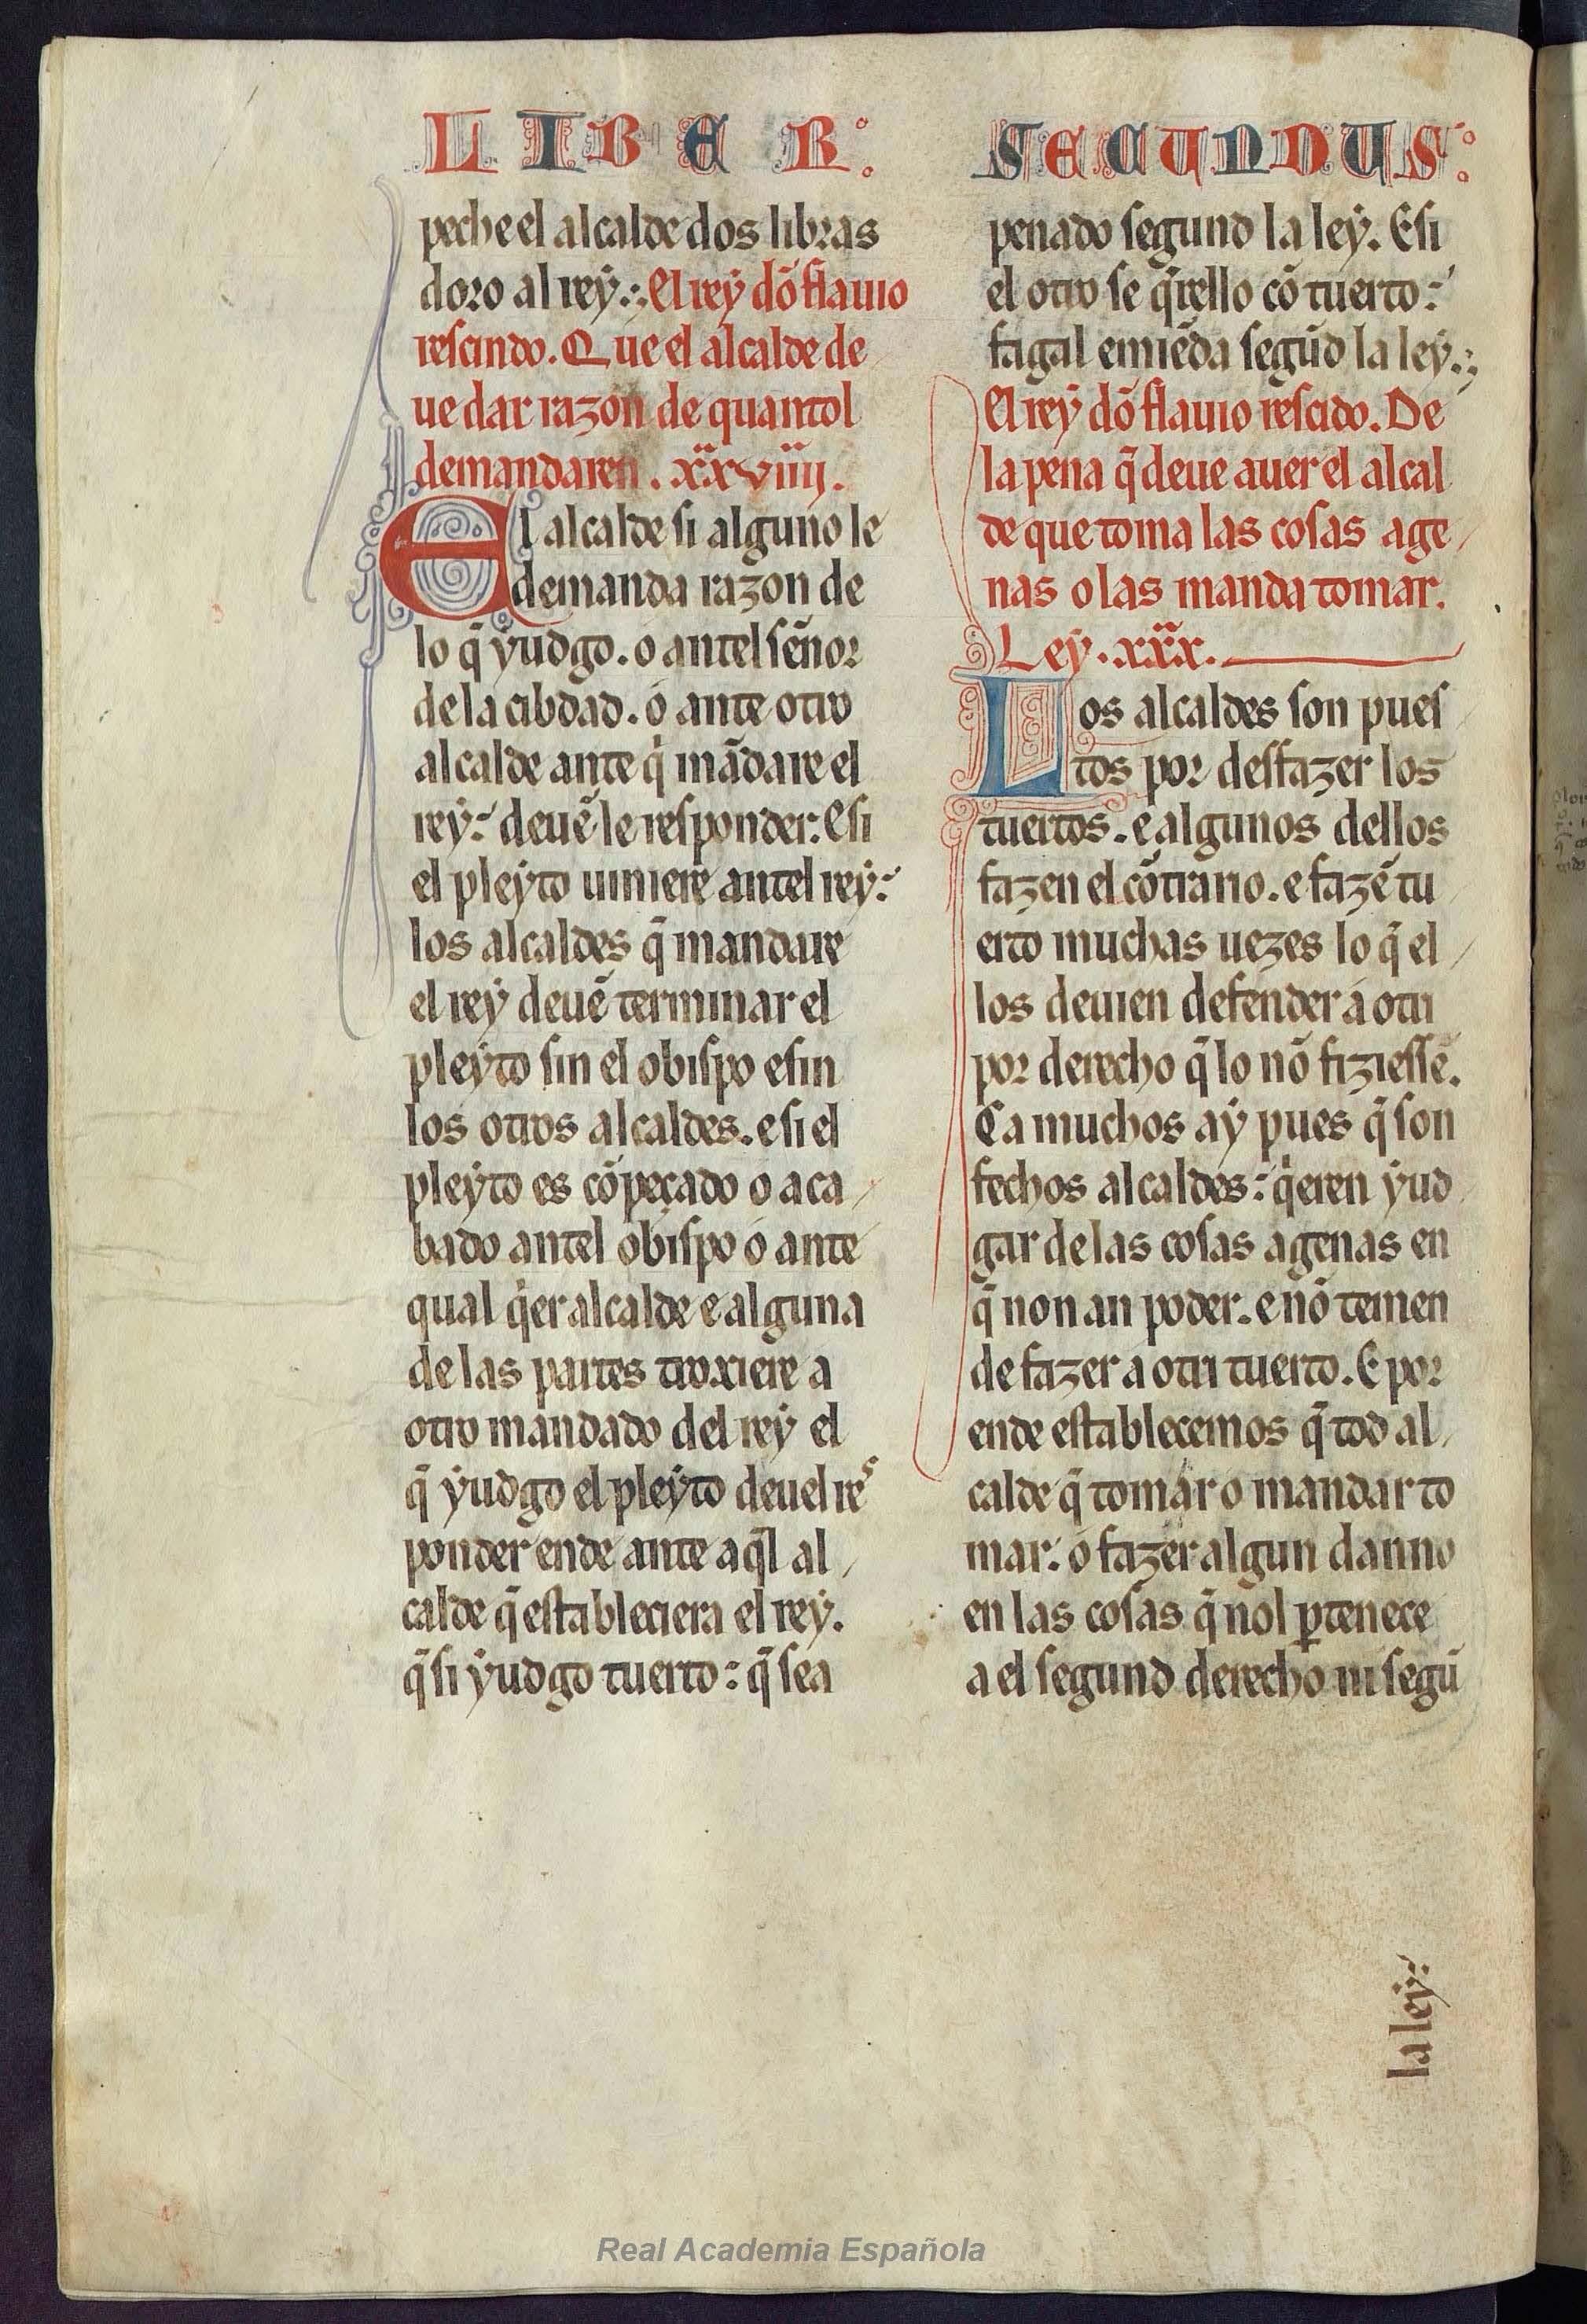 LIBER: SECUNDUS:
peche el alcalde dos libras
doro al rey.:, El rey dõ flauio
rescindo. Que el alcalde de
ue dar razon de quantol
demandaren. xxviiij.
El alcalde si alguno le
demanda razon de
lo q̃ yudgo. o antel señor
de la cibdad. o ante otro
alcalde ante q̇ mãdare el
rey: deuẽ le responder: E si
el pleyto uiniere antel rey:
los alcaldes q̃ mandare
el rey deuẽ terminar el
pleyto sin el obispo e sin
los otros alcaldes. e si el
pleyto es cõpeçado o aca
bado antel obispo o ante
qual q̇er alcalde e alguna
de las partes troxiere a
otro mandado del rey el
q̃ yudgo el pleyto deuel reˢ
ponder ende ante aq̃l al
calde q̃ estableciera el rey.
q̃ si yudgo tuerto: q̃ sea
penado segund la ley. E si
el otro se q̃rello cõ tuerto:
fagal emiẽda segũd la ley.:,
El rey dõ flauio rescido. De
la pena q̃ deue auer el alcal
de que toma las cosas age
nas o las manda tomar.
Ley. xxx.
Los alcaldes son pues
tos por desfazer los
tuertos. e algunos dellos
fazen el cõtrario. e fazẽ tu
erto muchas uezes lo q̃ el
los deuien defender a otri
por derecho q̃ lo nõ fiziessẽ.
Ca muchos ay pues q̃ son
fechos alcaldes: q̇eren yud
gar de las cosas agenas en
q̃ non an poder. e nõ temen
de fazer a otri tuerto. E por
ende establecemos q̃ tod al
calde q̃ tomar o mandar to
mar. o fazer algun danno
en las cosas q̃ nol ꝑtenece
a el segund derecho ni segũ
la ley:
Real Academia Española